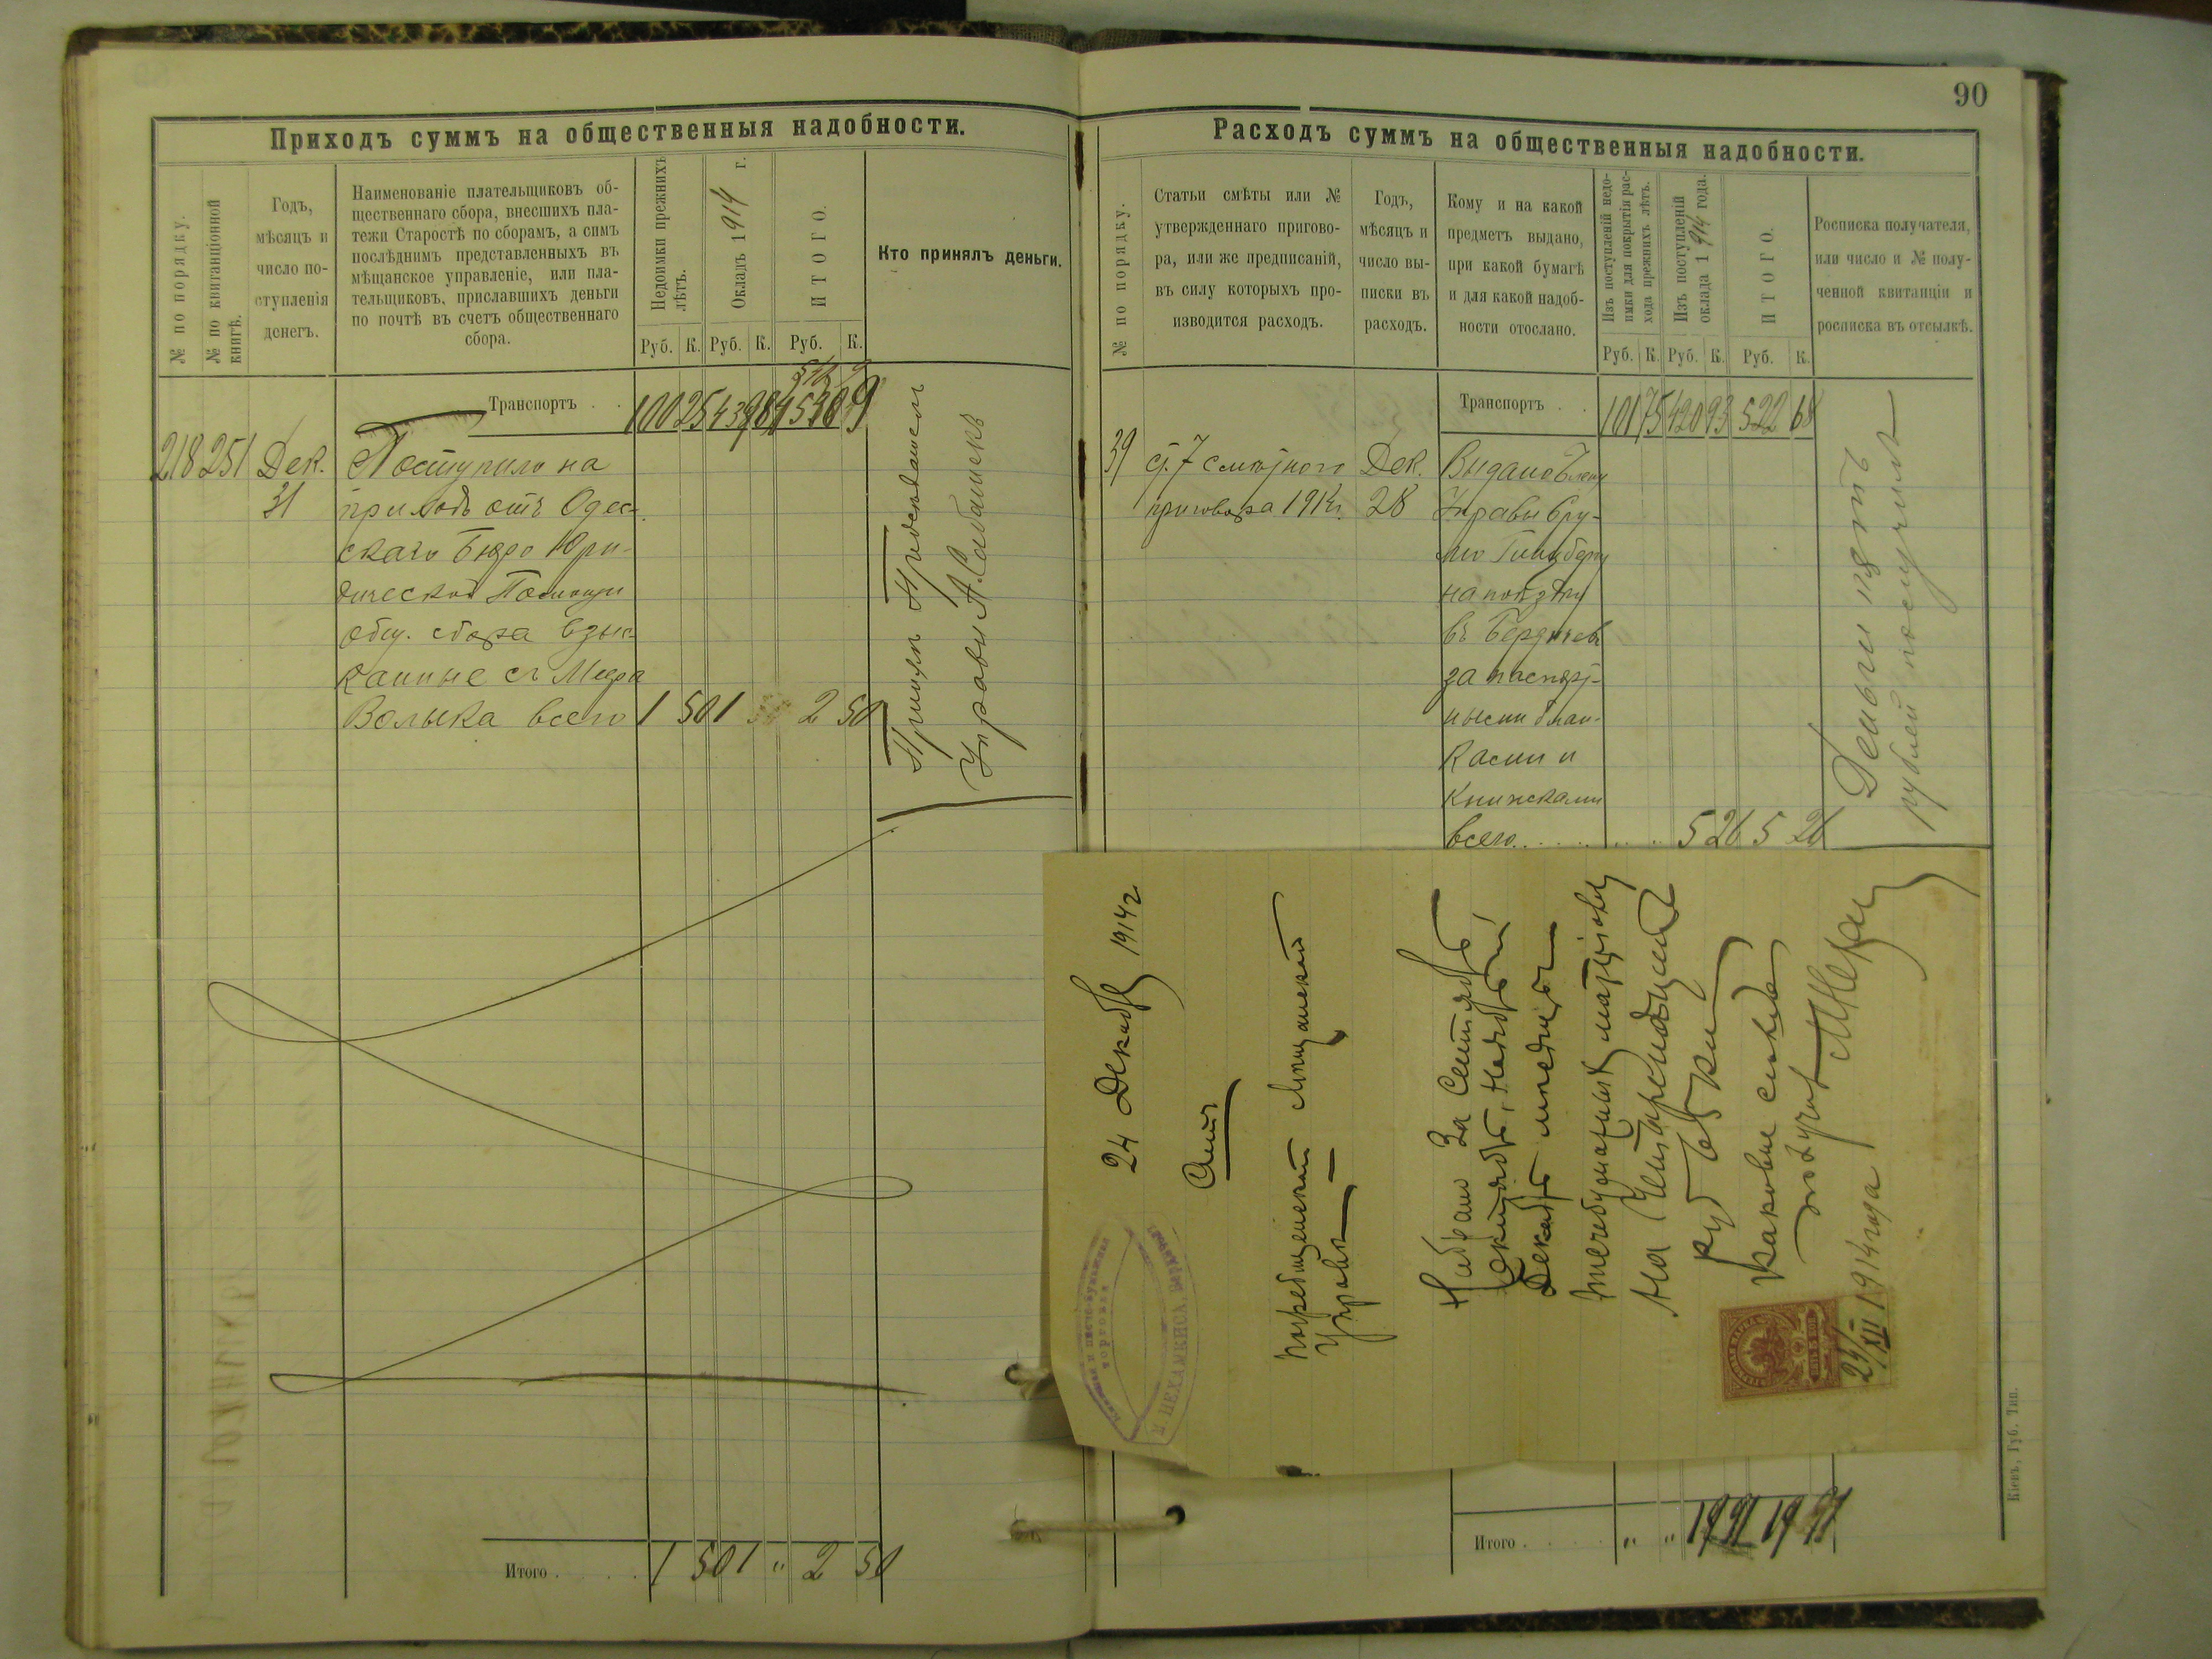 Приходъ суммъ на общественныя надобности.
№ по порядку.
№ по квитанціонной книгѣ.
Годъ,
мѣсяцъ и
число по-
ступленія
денегъ.
Наименованіе плательщиковъ об-
щественнаго сбора, внесшихъ пла-
тежи Старостѣ по сборамъ, а симъ
послѣднимъ представленныхъ въ
мѣщанское управленіе, или пла-
тельщиковъ, приславшихъ деньги
по почтѣ въ счетъ общественнаго
сбора.
Недоимки прежнихъ
лѣтъ.
Окладъ 1914 г.
ИТОГО.
Кто принялъ деньги.
Руб. К. Руб. К. Руб. К.
Транспортъ . . 100 25 439
218 251 Дек. Поступило на
31 приходъ отъ Одес-
скаго Бюро Юри-
дической Помощи
общ. сбора взыс-
канные съ Меера
Волыка всего 1 50 1 2 50
Принялъ Предсѣдатель
Управы А.
Итого . . . . 1 50 1 " 2 50
90
Расходъ суммъ на общественныя надобности.
№ по порядку.
Статьи смѣты или №
утвержденнаго пригово-
ра, или же предписаній,
въ силу которыхъ про-
изводится расходъ.
Годъ,
мѣсяцъ и
число вы-
писки въ
расходъ.
Кому и на какой
предметъ выдано,
при какой бумагѣ
и для какой надоб-
ности отослано.
Изъ поступленій недо-
имки для покрытія рас-
хода прежнихъ лѣтъ.
Изъ поступленій
оклада 1914 года.
ИТОГО.
Росписка получателя,
или число и № полу-
ченной квитанціи и
росписка въ отсылкѣ.
Руб. К. Руб. К. Руб. К.
Транспортъ . . 101 75 420 93 522 68
39 ст. 7 смѣтнаго Дек. Выдано Члену
приговора 1914г. 28 Управы Сру-
лю Гинзбергу
на поѣздку
въ Бердичевъ
за паспорт-
ными блан-
ками и
книжками
всего . . . . . 5 26 5 26
Деньги пять
рублей получилъ
24 Декабр 1914г
Счетъ
Погребищенской Мѣщанской
Управы
Набрано За Сентябрь
Октябрь, Ноябрь и
Декабрь мѣсяцы
на
руб 65 коп
каковые сполна
получ
24/XII 1914 года
Итого . . . . " " 19 91 19 91
Кіевъ, Губ. Тип.